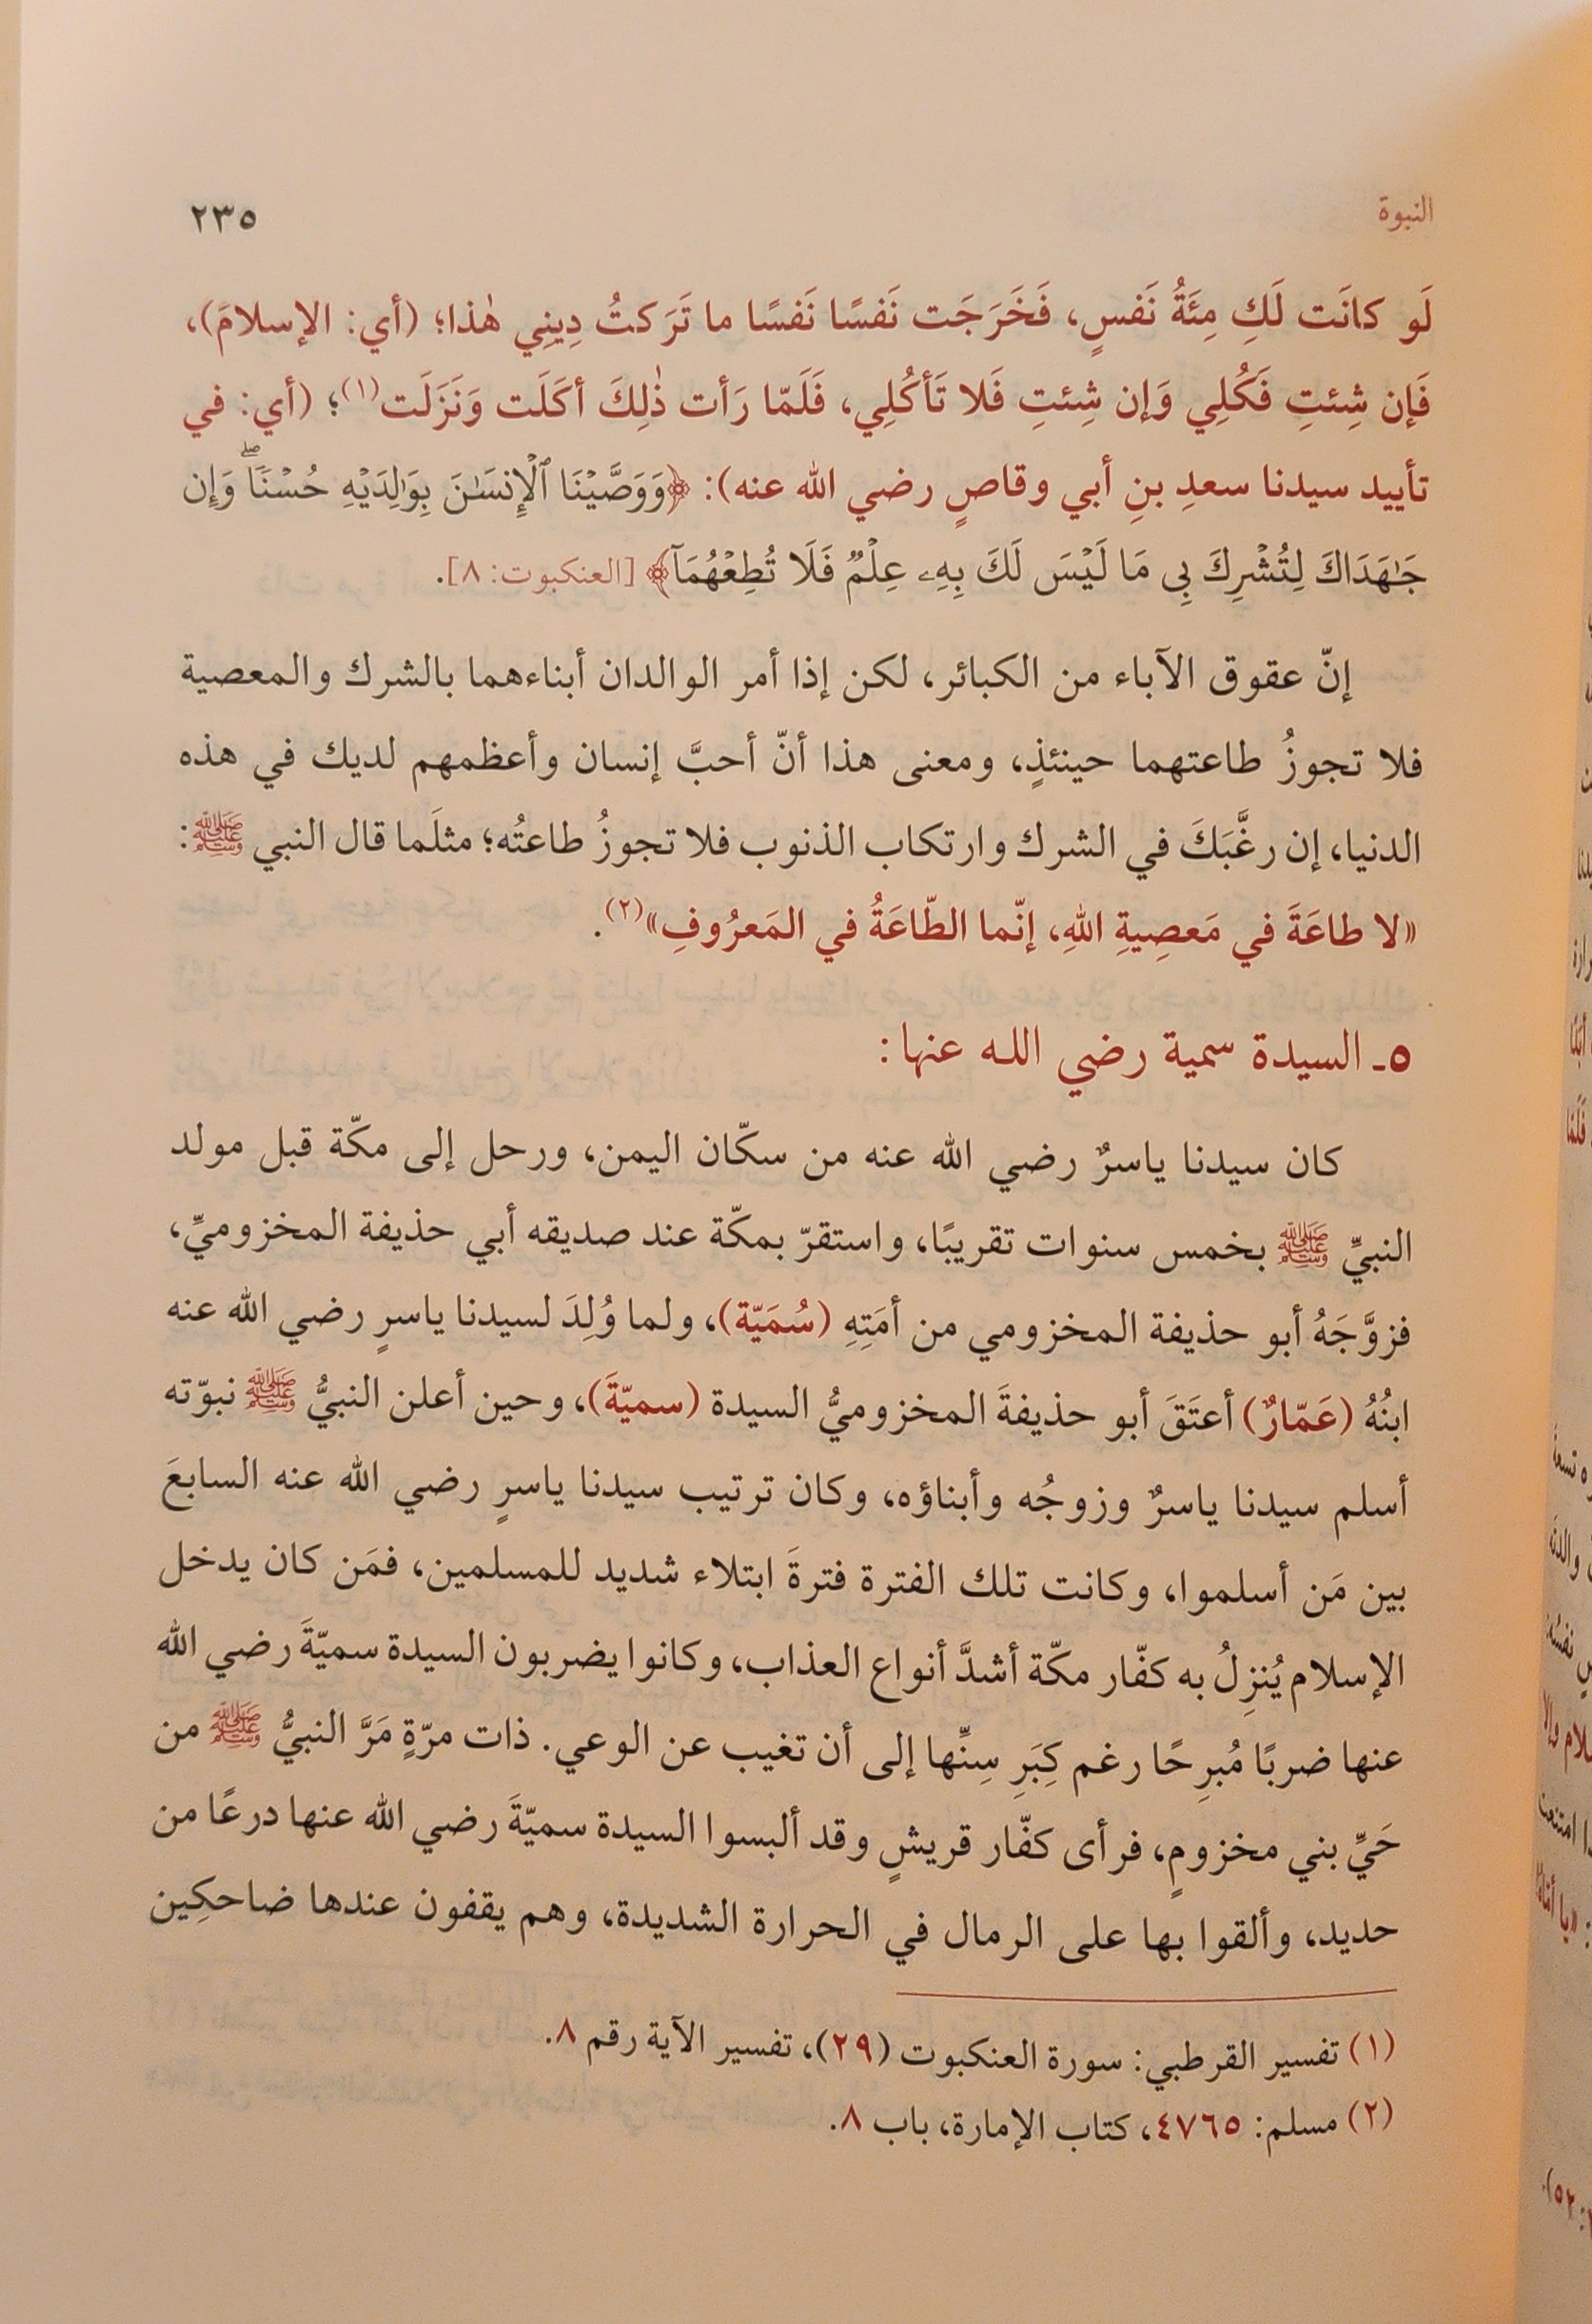 النبوة
٢٣٥
لَو كانَت لَكِ مِئَةُ نَفسٍ، فَخَرَجَت نَفسًا نَفسًا ما تَرَكتُ دِينِي هٰذا؛ (أي: الإسلامَ)،
فَإن شِئتِ فَكُلِي وَإن شِئتِ فَلا تَأكُلِي، فَلَمّا رَأت ذٰلِكَ أكَلَت وَنَزَلَت(١)؛ (أي: في
تأييد سيدنا سعدِ بنِ أبي وقاصٍ رضي الله عنه): ﴿وَوَصَّيْنَا ٱلْإِنسَـٰنَ بِوَٰلِدَيْهِ حُسْنًاۖ وَإِن
جَـٰهَدَاكَ لِتُشْرِكَ بِى مَا لَيْسَ لَكَ بِهِۦ عِلْمٌ فَلَا تُطِعْهُمَآ﴾ [العنكبوت: ٨].
إنّ عقوق الآباء من الكبائر، لكن إذا أمر الوالدان أبناءهما بالشرك والمعصية
فلا تجوزُ طاعتهما حينئذٍ، ومعنى هذا أنّ أحبَّ إنسان وأعظمهم لديك في هذه
الدنيا، إن رغَّبَكَ في الشرك وارتكاب الذنوب فلا تجوزُ طاعتُه؛ مثلَما قال النبي ﷺ:
«لا طاعَةَ في مَعصِيةِ اللهِ، إنّما الطّاعَةُ في المَعرُوفِ»(٢).
٥ـ السيدة سمية رضي الله عنها:
كان سيدنا ياسرٌ رضي الله عنه من سكّان اليمن، ورحل إلى مكّة قبل مولد
النبيِّ ﷺ بخمس سنوات تقريبًا، واستقرّ بمكّة عند صديقه أبي حذيفة المخزوميِّ،
فزوَّجَهُ أبو حذيفة المخزومي من أمَتِهِ (سُمَيّة)، ولما وُلِدَ لسيدنا ياسرٍ رضي الله عنه
ابنُهُ (عَمّارٌ) أعتَقَ أبو حذيفةَ المخزوميُّ السيدة (سميّةَ)، وحين أعلن النبيُّ ﷺ نبوّته
أسلم سيدنا ياسرٌ وزوجُه وأبناؤه، وكان ترتيب سيدنا ياسرٍ رضي الله عنه السابعَ
بين مَن أسلموا، وكانت تلك الفترة فترةَ ابتلاء شديد للمسلمين، فمَن كان يدخل
الإسلام يُنزِلُ به كفّار مكّة أشدَّ أنواع العذاب، وكانوا يضربون السيدة سميّةَ رضي الله
عنها ضربًا مُبرِحًا رغم كِبَرِ سِنِّها إلى أن تغيب عن الوعي. ذات مرّةٍ مَرَّ النبيُّ ﷺ من
حَيِّ بني مخزومٍ، فرأى كفّار قريشٍ وقد ألبسوا السيدة سميّةَ رضي الله عنها درعًا من
حديد، وألقوا بها على الرمال في الحرارة الشديدة، وهم يقفون عندها ضاحكِين
(١) تفسير القرطبي: سورة العنكبوت (٢٩)، تفسير الآية رقم ٨.
(٢) مسلم: ٤٧٦٥، كتاب الإمارة، باب ٨.